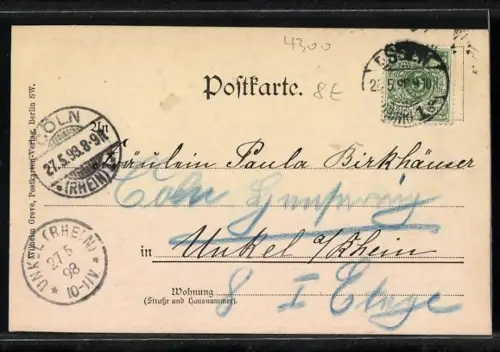 4300
8E
Postkarte.
ESSEN
CÖLN
27.5.98.8-9V.
(RHEIN)
An
Fräulein Paula Birkhäuser
Cöln
in Unkel a/Rhein
Wohnung
(Straße und Hausnummer)
8 I Etage
UNKEL (RHEIN)
27 5
98
10-11V
Wilhelm Greve, Postkarten-Verlag, Berlin SW.